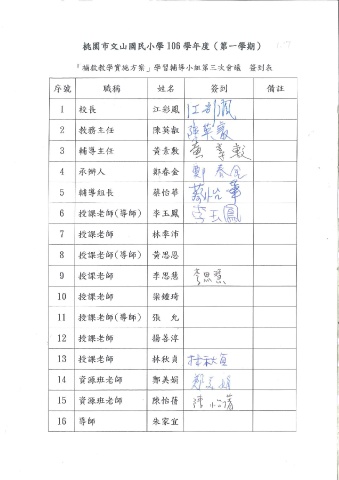 桃園市文山國民小學 106 學年度（第一學期）
「補救教學實施方案」學習輔導小組第三次會議 簽到表
序號 職稱 姓名 簽到 備註
1 校長 江彩鳳 江彩鳳
2 教務主任 陳英叡 陳英叡
3 輔導主任 黃素敷 黃素敷
4 承辦人 鄭春金 鄭春金
5 輔導組長 蔡怡華 蔡怡華
6 授課老師(導師) 李玉鳳 李玉鳳
7 授課老師 林季沛
8 授課老師(導師) 黃思恩
9 授課老師 李思慧 李思慧
10 授課老師 梁鍾琦
11 授課老師(導師) 張 允
12 授課老師 楊善淳
13 授課老師 林秋貞 林秋貞
14 資源班老師 鄭美娟 鄭美娟
15 資源班老師 陳怡蒨 陳怡蒨
16 導師 朱家宜